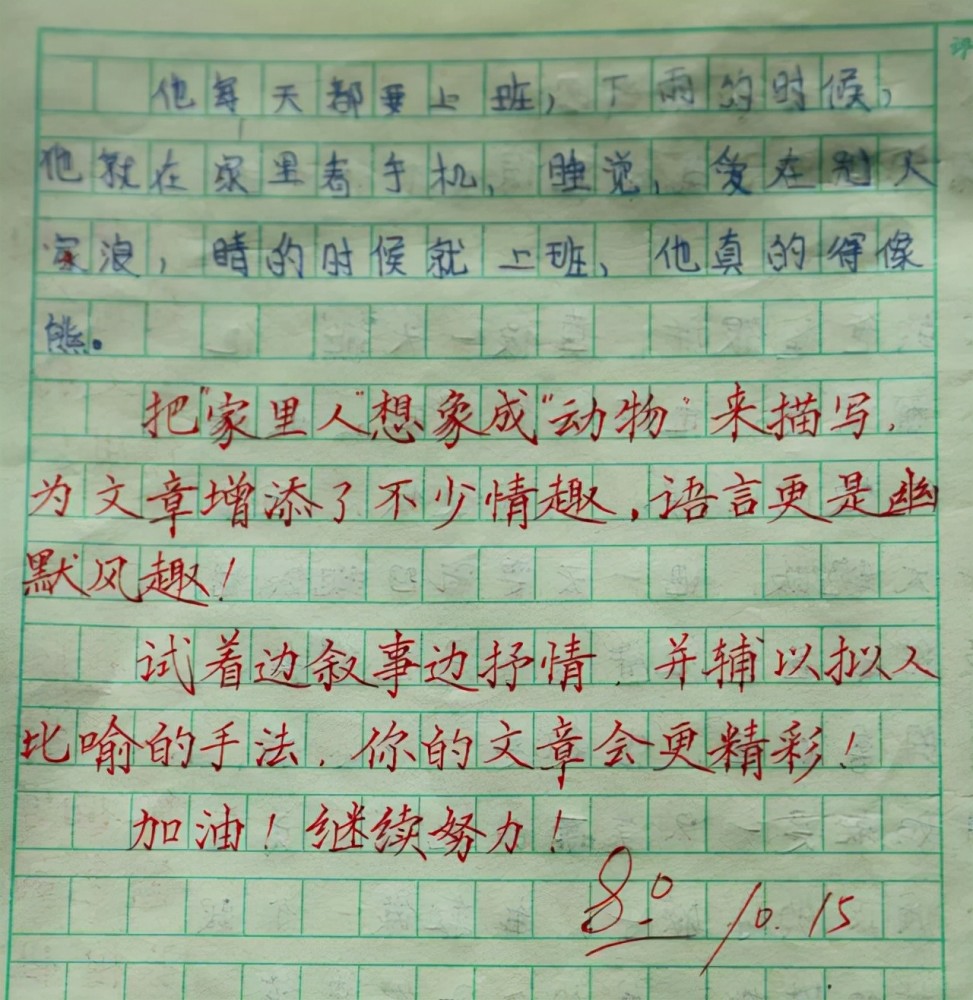 他每天都要上班，下雨的时候，
他就在家里看手机，睡觉，爱在别人
家浪，晴的时候就上班，他真的得像
熊。
把"家里人"想象成"动物"来描写，
为文章增添了不少情趣，语言更是幽
默风趣！
试着边叙事边抒情，并辅以拟人
比喻的手法，你的文章会更精彩！
加油！继续努力！
80 10.15